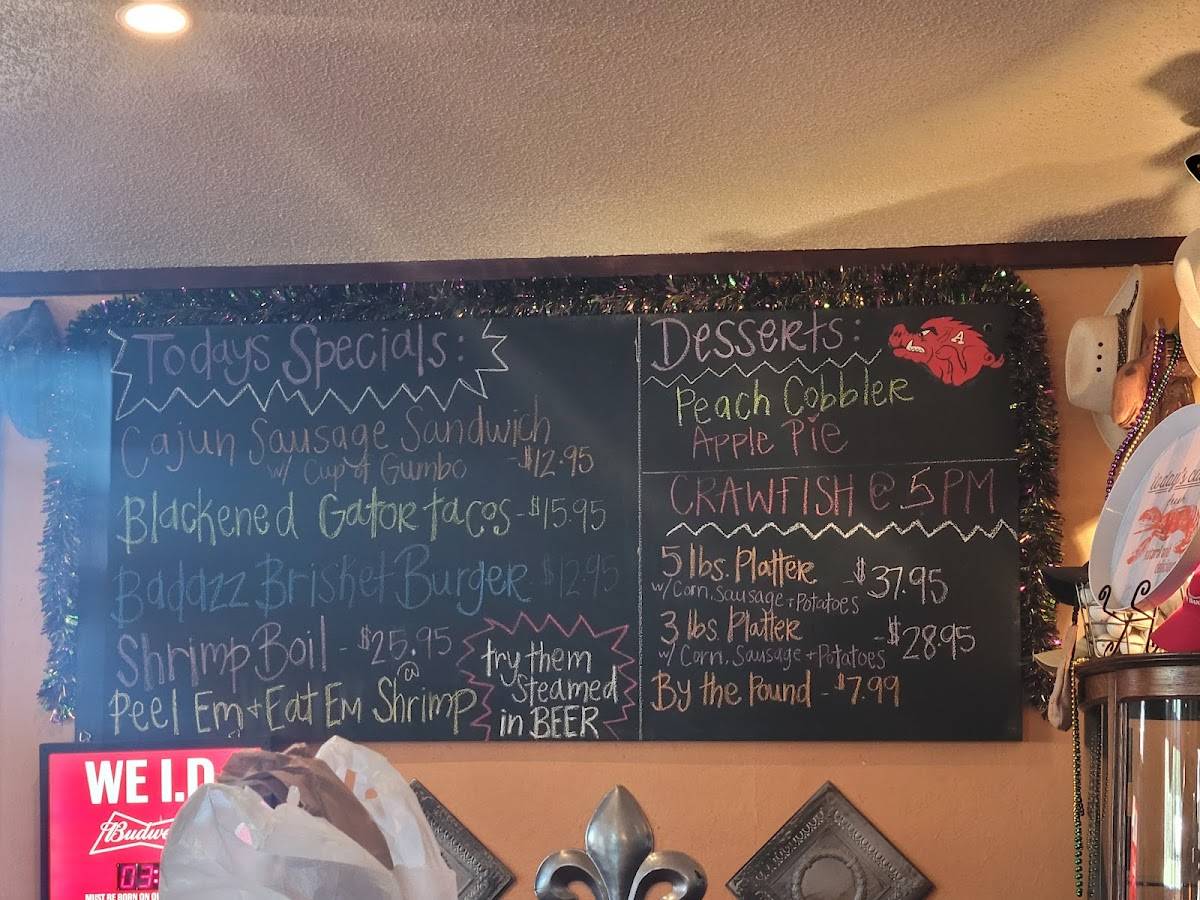 Todays Specials:
Cajun Sausage Sandwich
w/ Cup of Gumbo -$12.95
Blackened Gator tacos -$15.95
Badazz Brisket Burger $12.95
Shrimp Boil - $25.95
Peel Em + Eat Em Shrimp
try them
steamed
in BEER
Desserts:
A
Peach Cobbler
Apple Pie
CRAWFISH @ 5PM
5 lbs. Platter -$37.95
w/ Corn, Sausage + Potatoes
3 lbs. Platter -$28.95
w/ Corn, Sausage + Potatoes
By the Pound - $7.99
WE I.D.
03:
MUST BE BORN ON
today's